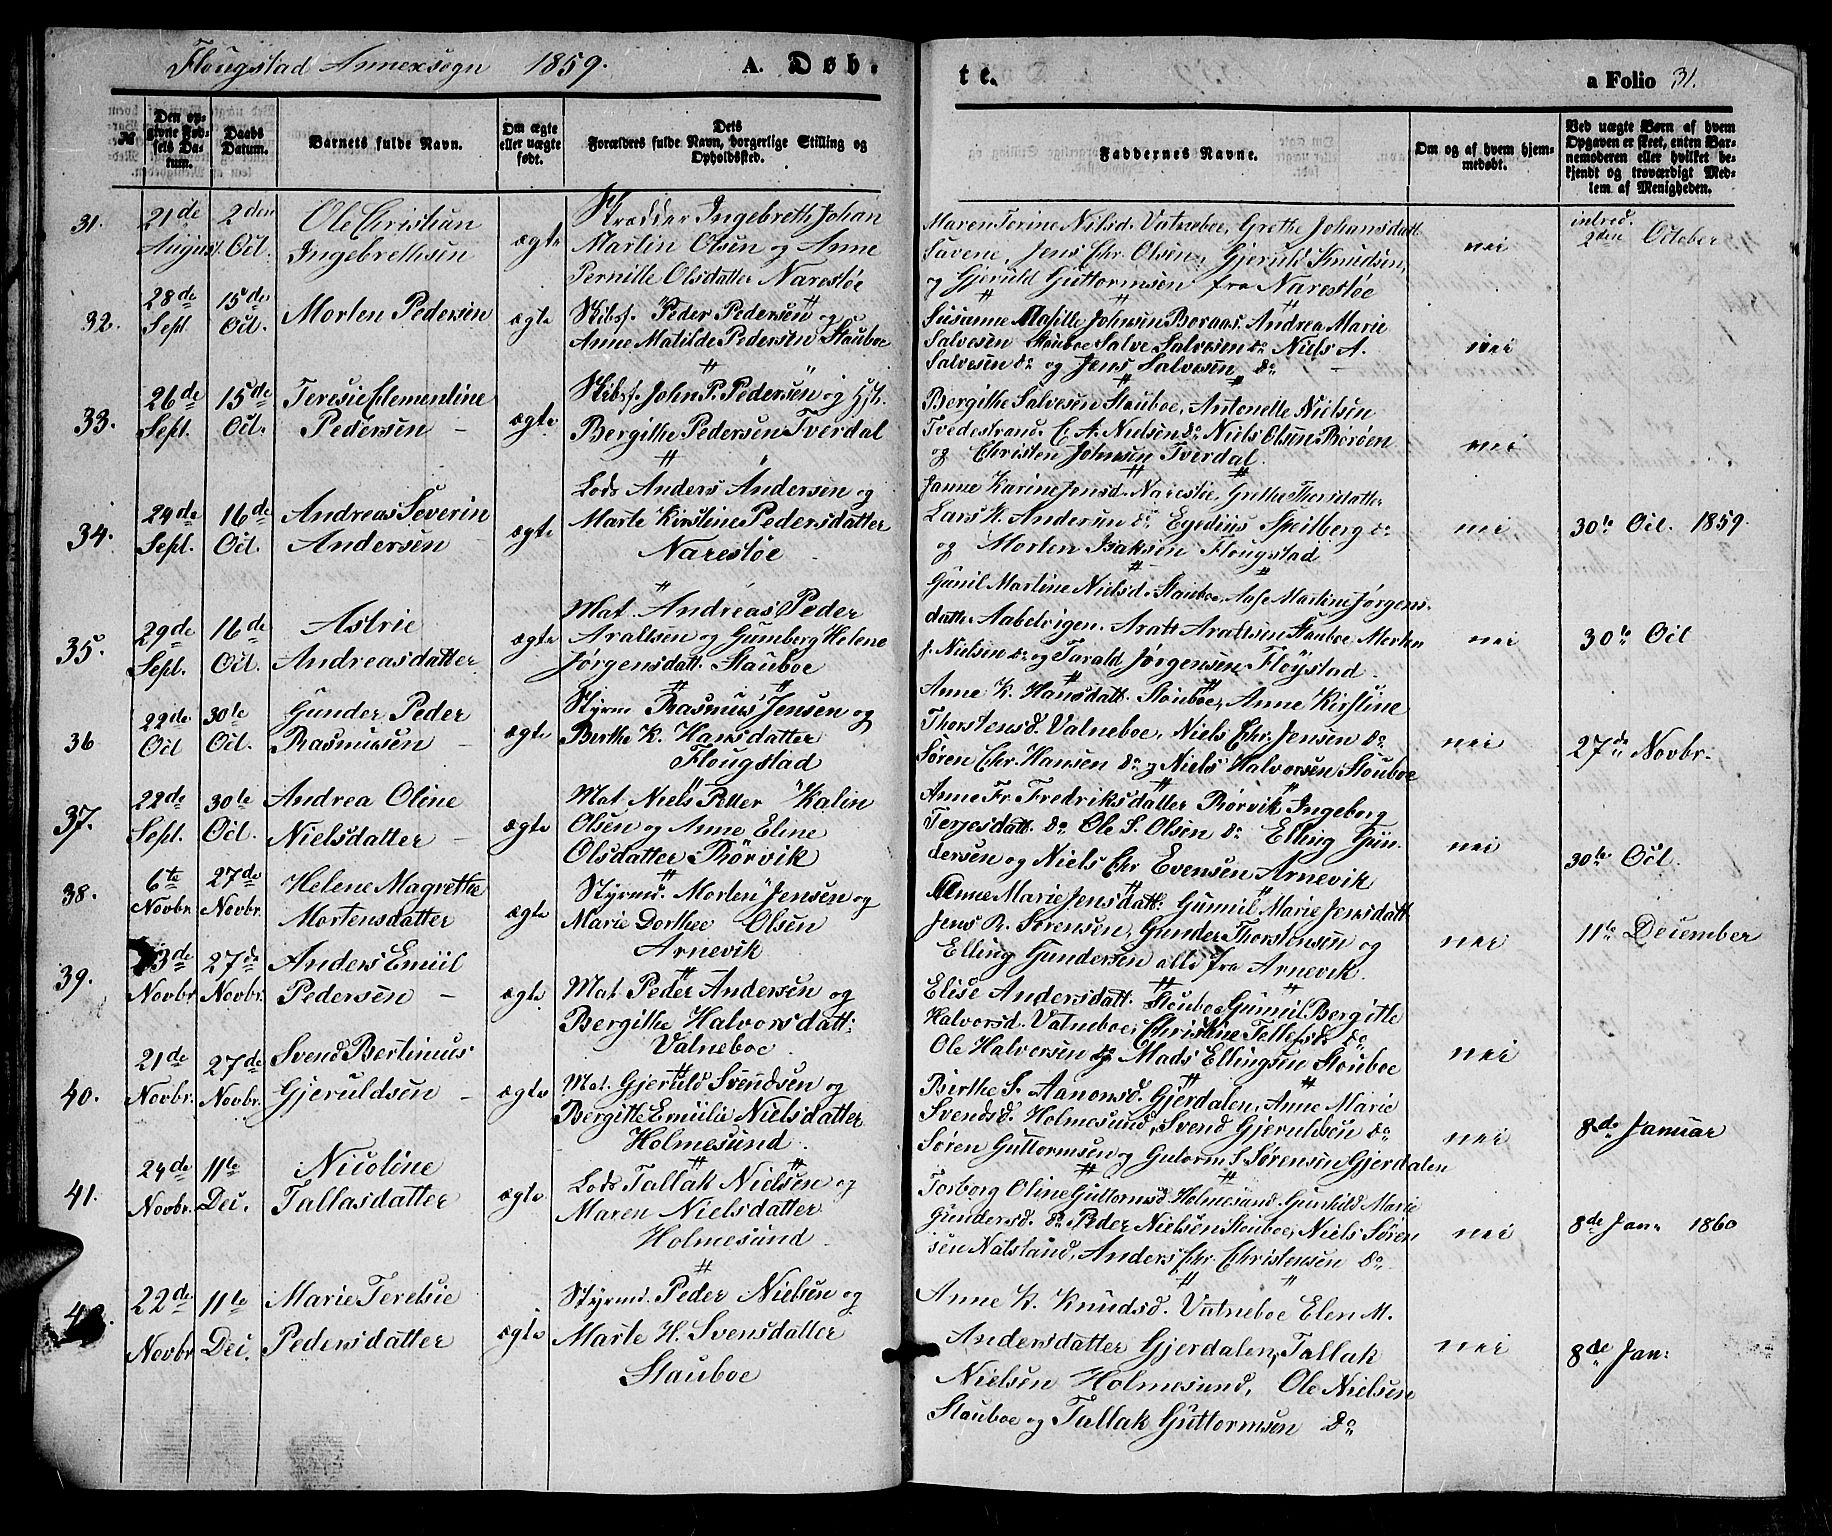 Flougstad Annexsogn 1859. A. Døb-
te.
a Folio 31.
№
Den opgivne Fødsels Datum.
Daabs Datum.
Barnets fulde Navn.
Om ægte eller uægte født.
Dets Forældres fulde Navn, borgerlige Stilling og Opholdssted.
Faddernes Navne.
Om og af hvem hjemmedøbt.
Ved uægte Børn af hvem Opgaven er skeet, enten Barnemoderen eller hvilket bekjendt og troværdigt Medlem af Menigheden.
31. 21de August. 2den Oct. Ole Christian Ingebrethsen ægte
Ingebreth Johan
Martin Olsen og Anne
Pernille Olsdatter Narestøe
Maren Terine Nilsd. Vatneboe, Grethe Johansdatt.
Savene, Jens Chr. Olsen, Gjeruld Knudsen,
og Gjeruld Guttormsen fra Narestøe
nei
indred. 2den October
32. 28de Sept. 15de Oct. Morten Pedersen ægte
Skibsf. Peder Pedersen og
Anne Matilde Pedersen Stauboe
Susanne Johnsen Boraas. Andrea Marie
Salvesen Stauboe Salve Salvesen do Niels A.
Salvesen do og Jens Salvesen do
nei
33. 26de Sept. 15de Oct. Teresie Clementine Pedersen - ægte
Skibsf. John P. Pedersen og Hst.
Bergithe Pedersen Tverdal
Bergithe Salvesen Stauboe, Antonette Nielsen
Tvedestrand. C. A. Nielsen do Niels Olsen Borøen
og Christen Johnsen Tverdal.
nei
34. 24de Sept. 16de Oct. Andreas Severin Andersen - ægte
Lods Anders Andersen og
Marte Kirstine Pedersdatter
Narestøe
Janne Karine Jensd. Narestøe, Guthe Thorsdatter
Lars K. Andersen do Egedius Speilberg do
og Morten Isaksen Flougstad
nei
30te Oct. 1859.
35. 29de Sept. 16de Oct. Astrie Andreasdatter ægte
Mat. Andreas Peder
Araltsen og Gumberg Helene
Jørgensdatt. Stauboe
Gunil Martine Nielsd. Stauboe, Aase Martine Jørgens-
datt. Aabelvigen. Aralt Araltsen Stauboe Morten
J. Nielsen do og Tarald Jørgensen Fløystad -
nei
30te Oct
36 22de Oct 30te Oct. Gunder Peder Rasmussen - ægte
Styrm Rasmus Jensen og
Birthe K. Hansdatter
Flougstad
Anne K. Hansdatt. Stouboe, Anne Kirstine
Thorstensd. Vatneboe, Niels Chr. Jensen do
Søren Chr. Hansen do og Niels Halvorsen Stouboe
nei
27de Novbr.
37. 22de Sept. 30te Oct. Andrea Oline Nielsdatter - ægte
Mat Niels Petter Kalin
Olsen og Anne Eline
Olsdatter Rørvik
Anne Fr. Fredriksdatter Rørvik Ingeborg
Terjesdatt. do Ole S. Olsen do Elling Gun-
dersen og Niels Chr Evensen Arnevik
nei
30te Oct.
38. 6te Novbr 27de Novbr. Helene Magrethe Mortensdatter ægte
Styrmd. Morten Jensen og
Marie Dorthee Olsen
Arnevik
Anne Marie Jensdatt. Gunnil Marie Jensdatt
Jens R. Sørensen, Gunder Thorstensen og
Elling Gundersen alle fra Arnevik.
nei
11te December
39. 3de Novbr. 27de Novbr. Anders Emiil Pedersen - ægte
Mat Peder Andersen og
Bergithe Halvorsdatt:
Vatneboe
Elise Andersdatt. Stouboe Gunnil Bergitte
Halvorsd. Vatneboe, Christine Tellefsd. do
Ole Halvorsen og Mads Ellingsen Stouboe
nei
40. 21de Novbr. 27de Novbr. Svend Bertinius Gjeruldsen - ægte
Mat. Gjeruld Svendsen og
Bergitte Emilie Nielsdatter
Holmesund.
Birthe S. Aanonsd. Gjerdalen, Anne Marie
Svendsd. Holmesund, Svend Gjeruldsen do
Søren Guttormsen og Gutorm S. Sørensen Gjerdalen
nei
8de Januar
41. 24de Novbr. 11te Dec. Nicoline Tallasdatter ægte
Lods Tallak Nielsen og
Maren Nielsdatter
Holmesund -
Torborg Oline Guttormsd. Holmesund. Gunhild Marie
Gundersd. do Peder Nielsen Stouboe, Niels Søren
sen Natsland, Anders Chr. Christensen do
nei
8de Jan. 1860
22de Novbr 11te Dec. Marie Terelsie Pedersdatter ægte
Styrmd. Peder Nielsen og
Marte H. Svensdatter
Stauboe
Anne K. Knudsd. Vatneboe Elen M.
Andersdatter Gjerdalen, Tallak
Nielsen Holmesund, Ole Nielsen
Stauboe og Tallak Guttormsen do
nei
8de Jan: